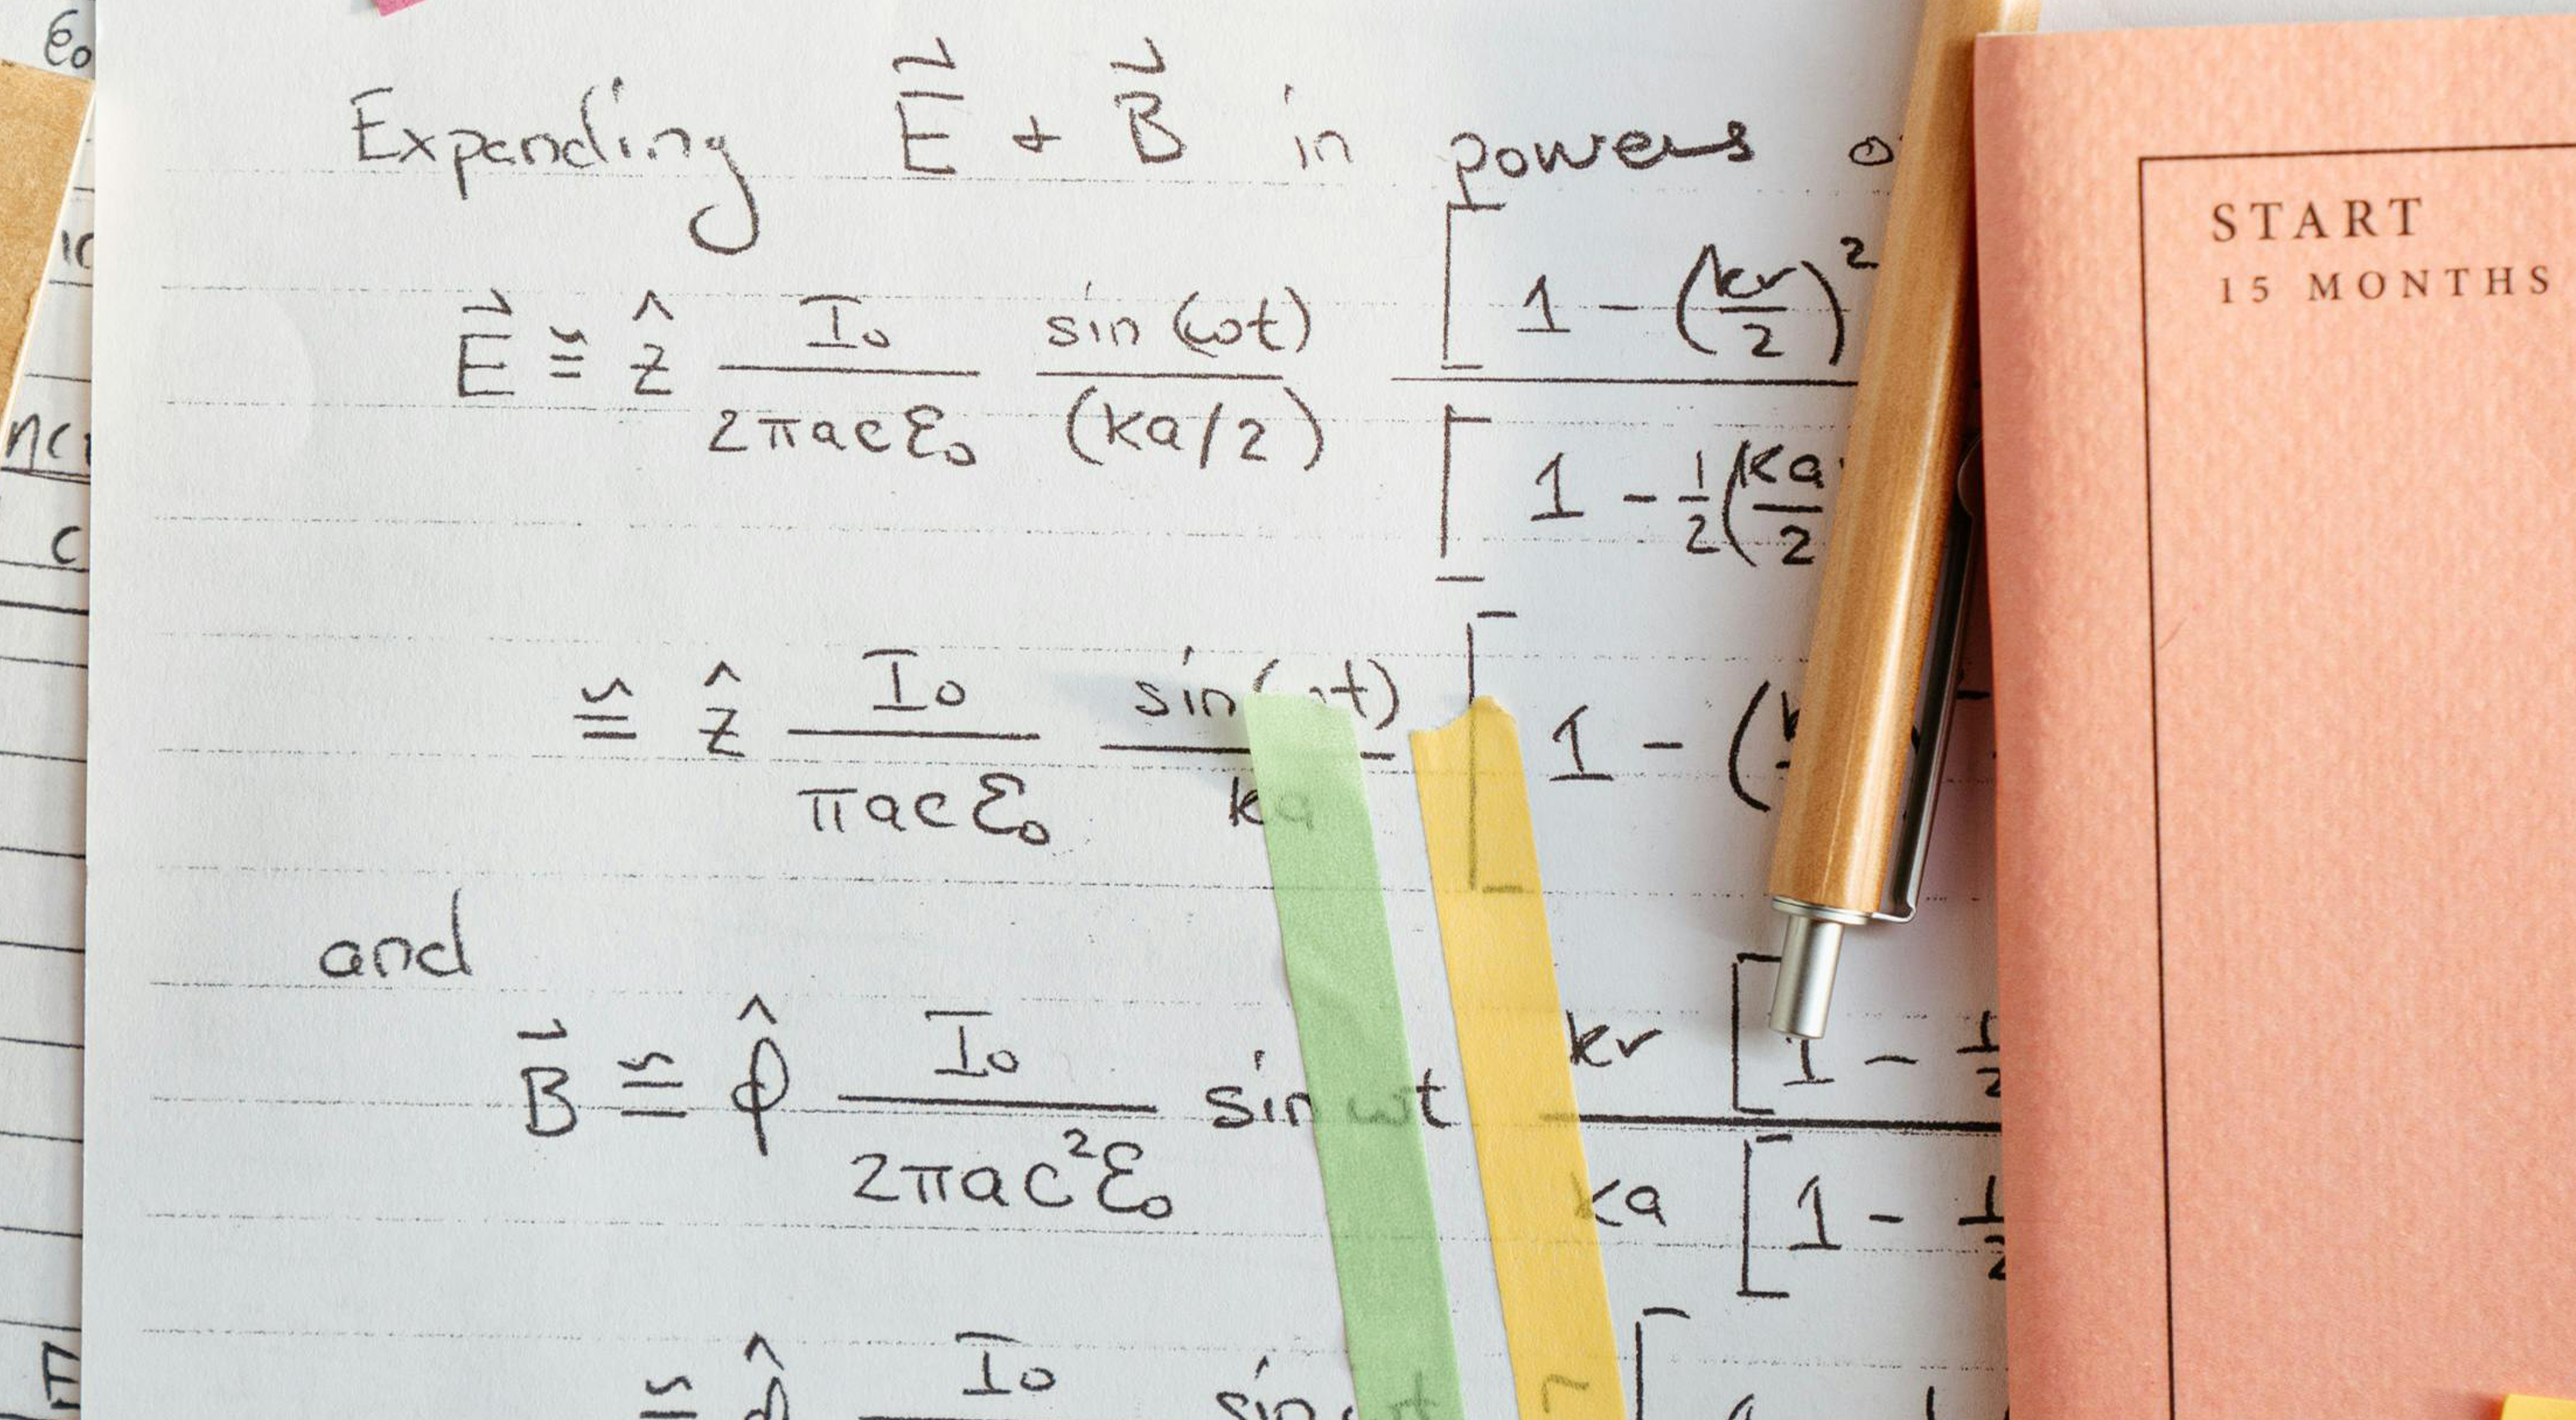 Expanding E⃗ + B⃗ in powers
E⃗ ≅ ẑ I₀/(2πacε₀) sin(ωt)/(ka/2) [1 - (kr/2)²
[1 - 1/2(ka/2
≅ ẑ I₀/(πacε₀) sin(ωt)/ka [1 - (
and
B⃗ ≅ φ̂ I₀/(2πac²ε₀) sin ωt kr [1 - 1/2
ka [1 - 1/2
≅ φ̂ I₀ sin
START
15 MONTHS
ε₀
c